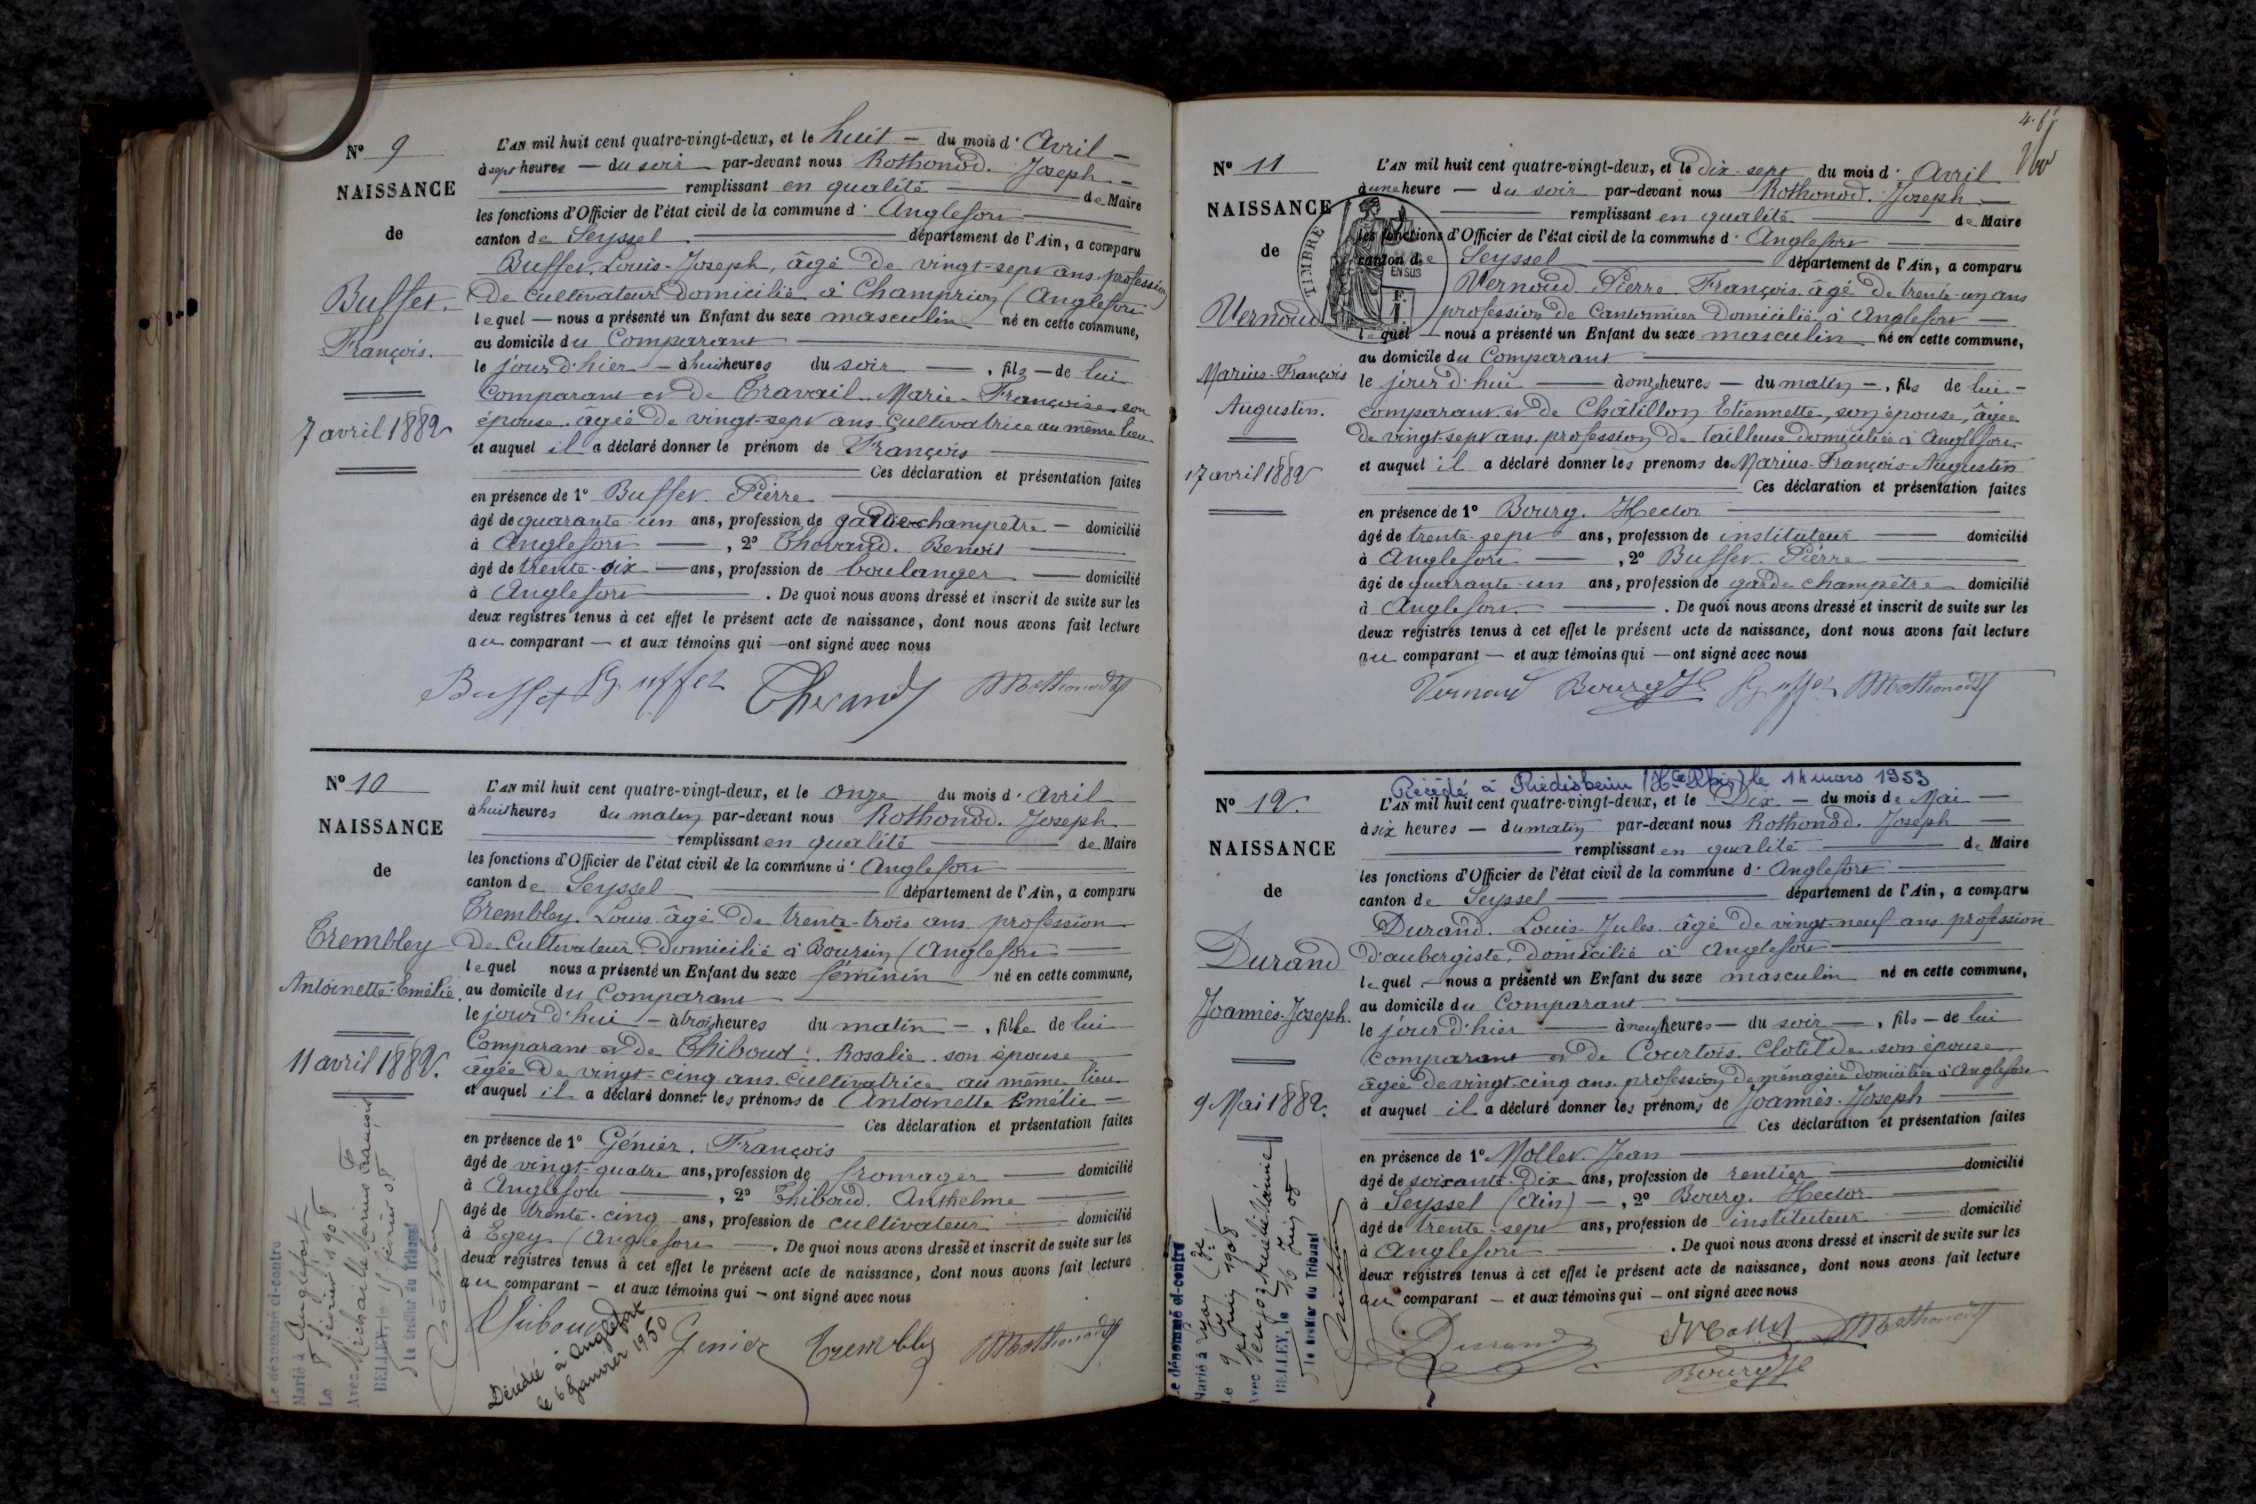 N° 9
NAISSANCE
de
Buffet.
François.
7 avril 1882
L'AN mil huit cent quatre-vingt-deux, et le huit — du mois d' Avril —
à sept heures — du soir par-devant nous Rothonod. Joseph —
remplissant en qualité de Maire
les fonctions d'Officier de l'état civil de la commune d' Anglefort
canton de Seyssel département de l'Ain, a comparu
Buffet, Louis-Joseph, âgé de vingt-sept ans profession
de cultivateur domicilié à Champrion (Anglefort
lequel — nous a présenté un Enfant du sexe masculin né en cette commune,
au domicile du Comparant
le jour d'hier — à huit heures du soir — , fils — de lui
Comparant et de Travail Marie-Françoise son
épouse âgée de vingt-sept ans cultivatrice au même lieu
et auquel il a déclaré donner le prénom de François
Ces déclaration et présentation faites
en présence de 1° Buffet. Pierre
âgé de quarante-un ans, profession de garde champêtre — domicilié
à Anglefort — , 2° Thovand. Benoit
âgé de trente-six — ans, profession de boulanger — domicilié
à Anglefort . De quoi nous avons dressé et inscrit de suite sur les
deux registres tenus à cet effet le présent acte de naissance, dont nous avons fait lecture
au comparant — et aux témoins qui — ont signé avec nous
Buffet Buffet Rothonod
N° 10
NAISSANCE
de
Trembley
Antoinette-Emélie.
11 avril 1882.
L'AN mil huit cent quatre-vingt-deux, et le onze du mois d' Avril
à huit heures du matin par-devant nous Rothonod. Joseph
remplissant en qualité de Maire
les fonctions d'Officier de l'état civil de la commune d' Anglefort
canton de Seyssel département de l'Ain, a comparu
Trembley Louis âgé de trente-trois ans profession
de Cultivateur domicilié à Boursin (Anglefort
lequel nous a présenté un Enfant du sexe féminin né en cette commune,
au domicile du Comparant
le jour d'hui — à trois heures du matin — , fille de lui
Comparant et de Thiboud. Rosalie son épouse
âgée de vingt-cinq ans cultivatrice au même lieu
et auquel il a déclaré donner les prénoms de Antoinette Emélie —
Ces déclaration et présentation faites
en présence de 1° Génier. François
âgé de vingt-quatre ans, profession de fromager — domicilié
à Anglefort — , 2° Thiboud. Anthelme
âgé de trente-cinq ans, profession de cultivateur domicilié
à Egey (Anglefort — . De quoi nous avons dressé et inscrit de suite sur les
deux registres tenus à cet effet le présent acte de naissance, dont nous avons fait lecture
au comparant — et aux témoins qui — ont signé avec nous
Thiboud Genier Trembley Rothonod
Décédé à Anglefort
le 6 Janvier 1950
Le dénommé ci-contre
Marié à Anglefort
Le 8 février 1908
Avec Michaille Marius François
BELLEY, le 15 février 08
Le Greffier du Tribunal
4.
N° 11
NAISSANCE
de
Vernoud
Marius-François
Augustin.
17 avril 1882
TIMBRE
L'AN mil huit cent quatre-vingt-deux, et le dix-sept du mois d' Avril
à une heure — du soir par-devant nous Rothonod. Joseph —
remplissant en qualité de Maire
les fonctions d'Officier de l'état civil de la commune d' Anglefort
canton de Seyssel département de l'Ain, a comparu
Vernoud Pierre François âgé de trente-un ans
profession de Cantonnier domicilié à Anglefort —
lequel — nous a présenté un Enfant du sexe masculin né en cette commune,
au domicile du Comparant
le jour d'hui — à onze heures — du matin — , fils de lui —
comparant et de Châtillon Etiennette, son épouse, âgée
de vingt-sept ans profession de tailleuse domiciliée à Anglefort
et auquel il a déclaré donner les prénoms de Marius-François-Augustin
Ces déclaration et présentation faites
en présence de 1° Bourg. Hector
âgé de trente-sept ans, profession de instituteur — domicilié
à Anglefort — , 2° Buffet. Pierre
âgé de quarante-un ans, profession de garde champêtre domicilié
à Anglefort. — . De quoi nous avons dressé et inscrit de suite sur les
deux registres tenus à cet effet le présent acte de naissance, dont nous avons fait lecture
au comparant — et aux témoins qui — ont signé avec nous
Vernoud Bourg H Buffet Rothonod
Décédé à Riedisheim (Ht Rhin) le 14 mars 1953
N° 12.
NAISSANCE
de
Durand
Joannès-Joseph.
9 Mai 1882.
L'AN mil huit cent quatre-vingt-deux, et le Dix — du mois de Mai —
à six heures — du matin par-devant nous Rothonod. Joseph —
remplissant en qualité de Maire
les fonctions d'Officier de l'état civil de la commune d' Anglefort
canton de Seyssel département de l'Ain, a comparu
Durand. Louis-Jules âgé de vingt-neuf ans profession
d'aubergiste, domicilié à Anglefort
lequel — nous a présenté un Enfant du sexe masculin né en cette commune,
au domicile du Comparant
le jour d'hier — à neuf heures — du soir — , fils — de lui
comparant et de Courtois Clotilde son épouse
âgée de vingt-cinq ans profession de ménagère domiciliée à Anglefort
et auquel il a déclaré donner les prénoms de Joannès-Joseph
Ces déclaration et présentation faites
en présence de 1° Mollet Jean
âgé de soixante-dix ans, profession de rentier domicilié
à Seyssel (Ain) — , 2° Bourg. Hector
âgé de trente-sept ans, profession de instituteur domicilié
à Anglefort . De quoi nous avons dressé et inscrit de suite sur les
deux registres tenus à cet effet le présent acte de naissance, dont nous avons fait lecture
au comparant — et aux témoins qui — ont signé avec nous
Durand Mollet Rothonod
Bourg H
Le dénommé ci-contre
Marié à
Le 9 Juin 1908
Avec
BELLEY, le 16 Juin 08
Le Greffier du Tribunal